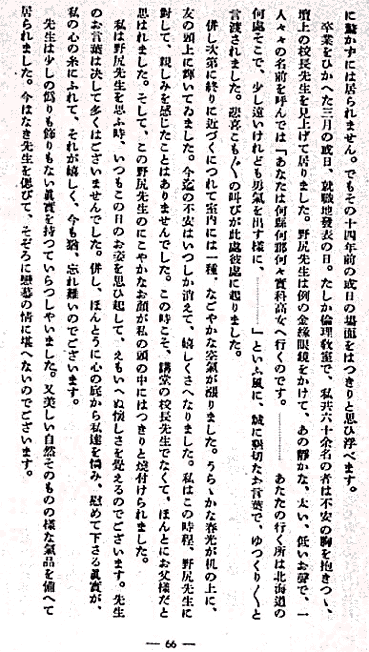 に驚かずには居られません。でもその十四年前の或日の場面をはつきりと思ひ浮べます。
卒業をひかへた三月の或日、就職地發表の日。たしか倫理敎室で、私共六十余名の者は不安の胸を抱きつゝ、
壇上の校長先生を見上げて居りました。野尻先生は例の金緣眼鏡をかけて、あの靜かな、太い、低いお聲で、一
人々々の名前を呼んでは「あなたは何縣何郡何々實科高女へ行くのです。…………あなたの行く所は北海道の
何處そこで、少し遠いけれども勇氣を出す樣に、…………」といふ風に、誠に懇切なお言葉で、ゆつくり〳〵と
言渡されました。悲喜こも〴〵の叫びが此處彼處に起りました。
併し次第に終りに近づくにつれて室内には一種、なごやかな空氣が漲りました。うらゝかな春光が机の上に、
友の頭上に輝いてゐました。今迄の不安はいつしか消えて、嬉しくさへなりました。私はこの時程、野尻先生に
對して、親しみを感じたことはありませんでした。この時こそ、講堂の校長先生でなくて、ほんとにお父樣だと
思はれました。そして、この野尻先生のにこやかなお顏が私の頭の中にはつきりと燒付けられました。
私は野尻先生を思ふ時、いつもこの日のお姿を思ひ起して、えもいへぬ懷しさを覺えるのでございます。先生
のお言葉は決して多くはございませんでした。併し、ほんとうに心の底から私達を憫み、慰めて下さる眞實が、
私の心の糸にふれて、それが嬉しく、今も猶、忘れ難いのでございます。
先生は少しの僞りも飾りもない眞實を持つていらつしやいました。又美しい自然そのものの樣な氣品を備へて
居られました。今はなき先生を偲びて、そぞろに戀慕の情に堪へないのでございます。
— 66 —